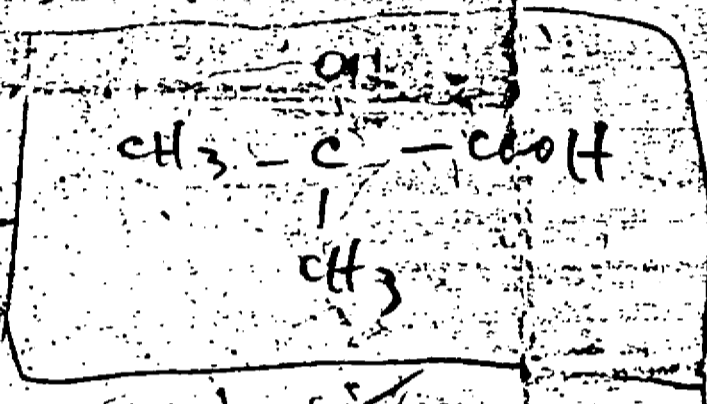 OH
CH3 - C - COOH
|
CH3